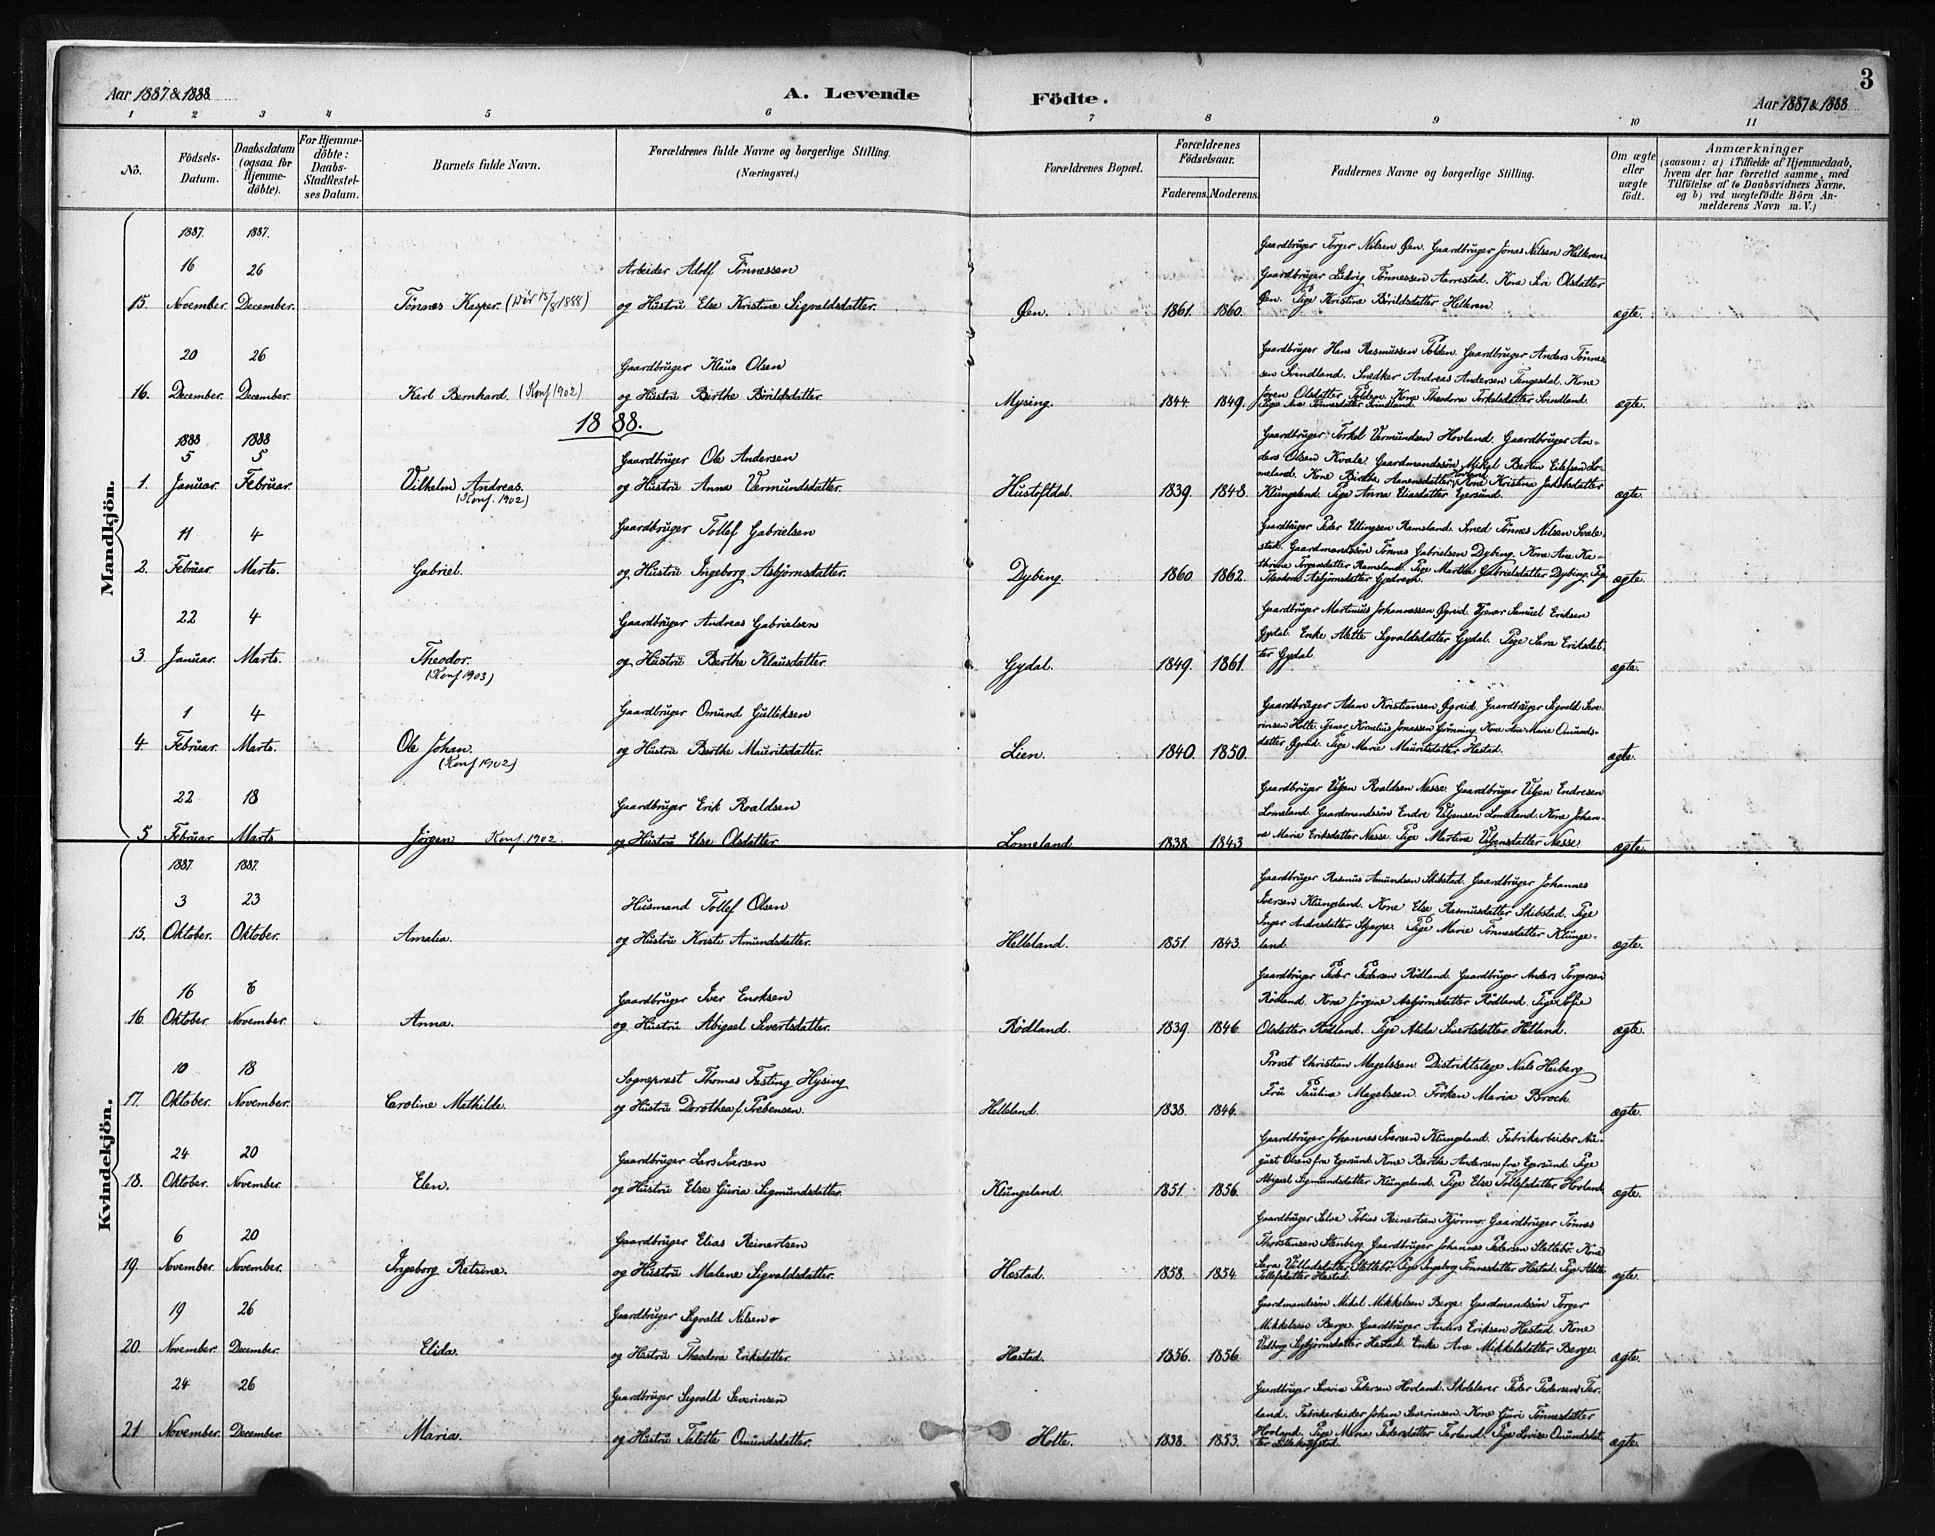 Aar 1887 & 1888.
A. Levende Födte.
Aar 1887 & 1888
3
1 2 3 4 5 6 7 8 9 10 11
No.
Födsels-Datum.
Daabsdatum (ogsaa for Hjemme-döbte).
For Hjemme-döbte: Daabs-Stadfæstel-ses Datum.
Barnets fulde Navn.
Forældrenes fulde Navne og borgerlige Stilling.
(Næringsvei.)
Forældrenes Bopæl.
Forældrenes Födselsaar.
Faderens. Moderens.
Faddernes Navne og borgerlige Stilling.
Om ægte eller uægte födt.
Anmærkninger
(saasom: a) i Tilfælde af Hjemmedaab, hvem der har forrettet samme, med Tilföielse af to Daabsvidners Navne, og b) ved uægtefödte Börn An-melderens Navn m. V.)
Mandkjön.
1887. 1887.
Gaardbruger Torger Nilsen Øen. Gaardbruger Jonas Nilsen Helleren.
16 26 Arbeider Adolf Tönnessen
Gaardbruger Ludvig Tönnessen Aarrestad. Kone Siri Olsdatter
15. November. December. Tönnes Kasper. (Dör 15/8 1888) og Hustru Else Kristine Sigvaldsdatter. Øen. 1861. 1860. Øen. Pige Kristine Börildsdatter Helleren. ægte.
Gaardbruger Hans Rasmussen Tolden. Gaardbruger Anders Tönnes-
20 26 Gaardbruger Klaus Olsen
sen Svindland. Snedker Andreas Andersen Tengesdal. Kone
16. December. December. Karl Bernhard. (Konf 1902) og Hustru Birthe Börildsdatter. Mysing. 1844. 1849. Joren Olsdatter Tolden. Kone Theodora Torkelsdatter Svindland. ægte.
Pige Ane Tönnesdatter Svindland.
1888.
1888 1888
5 5 Gaardbruger Ole Andersen
Gaardbruger Torkel Vermundsen Hovland. Gaardbruger An-
ders Olsen Kvale. Gaardmandssön Mikal Bertin Eilefsen Lo-
meland. Kone Birthe Aanensdatter Hovland. Kone Kristina Jakobsdatter
1. Januar. Februar. Vilhelm Andreas. (Konf. 1902) og Hustru Anna Vermundsdatter. Hustoftdal. 1839. 1848. Klungeland. Pige Anna Eliasdatter Egersund. ægte.
11 4 Gaardbruger Tollef Gabrielsen
Gaardbruger Peder Ellingsen Ramsland. Smed Tönnes Nilsen Svale-
stad. Gaardmandssön Tönnes Gabrielsen Dybing. Kone Ane Ka-
thrine Torgersdatter Ramsland. Pige Martha Gabrielsdatter Dybing. Pige
2. Februar. Marts. Gabriel. og Hustru Ingeborg Asbjörnsdatter. Dybing. 1860 1862. Theodora Asbjörnsdatter Gjedrem. ægte.
22 4 Gaardbruger Andreas Gabrielsen
Gaardbruger Martinius Johannessen Øgreid. Tjener Samuel Eriksen
Gydal. Enke Alette Sigvaldsdatter Gydal. Pige Sara Eriksdat-
3. Januar. Marts. Theodor. (Konf 1903) og Hustru Berthe Klausdatter. Gydal. 1849. 1861. ter Gydal. ægte.
1 4 Gaardbruger Omund Gulliksen
Gaardbruger Adam Kristiansen Øgreid. Gaardbruger Sigvald Seve-
rinsen Holte. Tjener Kornelius Jonassen Gjerning. Kone Ane Marie Omunds-
4 Februar. Marts. Ole Johan. (Konf 1902) og Hustru Berthe Mauritsdatter. Lien. 1840. 1850. datter Øgreid. Pige Marie Mauritsdatter Hæstad. ægte.
22 18 Gaardbruger Erik Roaldsen
Gaardbruger Udjen Roaldsen Nesse. Gaardbruger Udjen Endresen
Lomeland. Gaardmandssön Endre Udjensen Lomeland. Kone Johan-
5 Februar. Marts Jörgen Konf. 1902. og Hustru Else Olsdatter Lomeland 1838. 1843 ne Marie Eriksdatter Nesse. Pige Martine Udjensdatter Nesse ægte.
Kvindekjön.
1887 1887.
3 23 Husmand Tollef Olsen
Gaardbruger Rasmus Amundsen Skibstad. Gaardbruger Johannes
Iversen Klungland. Kone Else Rasmusdatter Skibstad. Pige
Inger Andreasdatter Skarpe. Pige Marie Tönnesdatter Klunge-
15. Oktober. Oktober. Amalia. og Hustru Kristi Amundsdatter. Helleland. 1851. 1843. land. ægte.
16 6 Gaardbruger Iver Enoksen
Gaardbruger Peder Pedersen Rödland. Gaardbruger Anders Torgersen
Rödland. Kone Jörgine Asbjörnsdatter Rödland. Pige Sofie
16 Oktober. November. Anna. og Hustru Abigael Sivertsdatter. Rödland. 1839 1846. Olsdatter Rödland. Pige Alida Sivertsdatter Hetland. ægte.
10 18 Sognepræst Thomas Fasting Hysing
Provst Christian Magelssen Distriktslæge Nils Heiberg
Fru Paulina Magelssen. Fröken Maria Broch.
17. Oktober. November. Caroline Mathilde. og Hustru Dorothea f. Prebensen. Helleland. 1838. 1846. ægte.
24 20 Gaardbruger Lars Iversen
Gaardbruger Johannes Iversen Klungeland. Fabrikarbeider Au-
gust Olsen fra Egersund. Kone Berthe Andersen fra Egersund. Pige
18. Oktober. November. Elen. og Hustru Else Guria Sigmundsdatter. Klungeland. 1851. 1856. Abigael Sigmundsdatter Klungeland. Pige Else Tollefsdatter Hovland. ægte.
6 20 Gaardbruger Elias Reinertsen
Gaardbruger Salve Tobias Reinertsen Kjörmo. Gaardbruger Tönnes
Thorstensen Stenberg. Gaardbruger Johannes Pedersen Slettebö. Kone
19. November. November. Ingeborg Retsine. og Hustru Malene Sigvaldsdatter. Hæstad. 1858. 1854. Sara Villadsdatter Slettebö. Pige Ingeborg Tönnesdatter Hæstad. Pige Alette
Tollefsdatter Hæstad. ægte.
19 26 Gaardbruger Sigvald Nilsen
Gaardmandssön Mikal Mikkelsen Berge. Gaardmandssön Torger
Mikkelsen Berge. Gaardbruger Anders Eriksen Hæstad. Kone
20. November. December. Elida. og Hustru Theodora Eriksdatter. Hæstad. 1856. 1856. Valborg Sigbjörnsdatter Hæstad. Enke Ane Mikkelsdatter Berge. ægte.
24 26 Gaardbruger Sigvald Severinsen
Gaardbruger Severin Pedersen Hovland. Skolelærer Peder Pedersen Ter-
land. Fabrikarbeider Johan Severinsen. Kone Guri Tönnesdatter
21 November. December. Maria. og Hustru Talette Omundsdatter. Holte. 1838. 1853. Hovland. Pige Maria Pedersdatter Terland. Pige Lovise Omundsdat-
ægte.